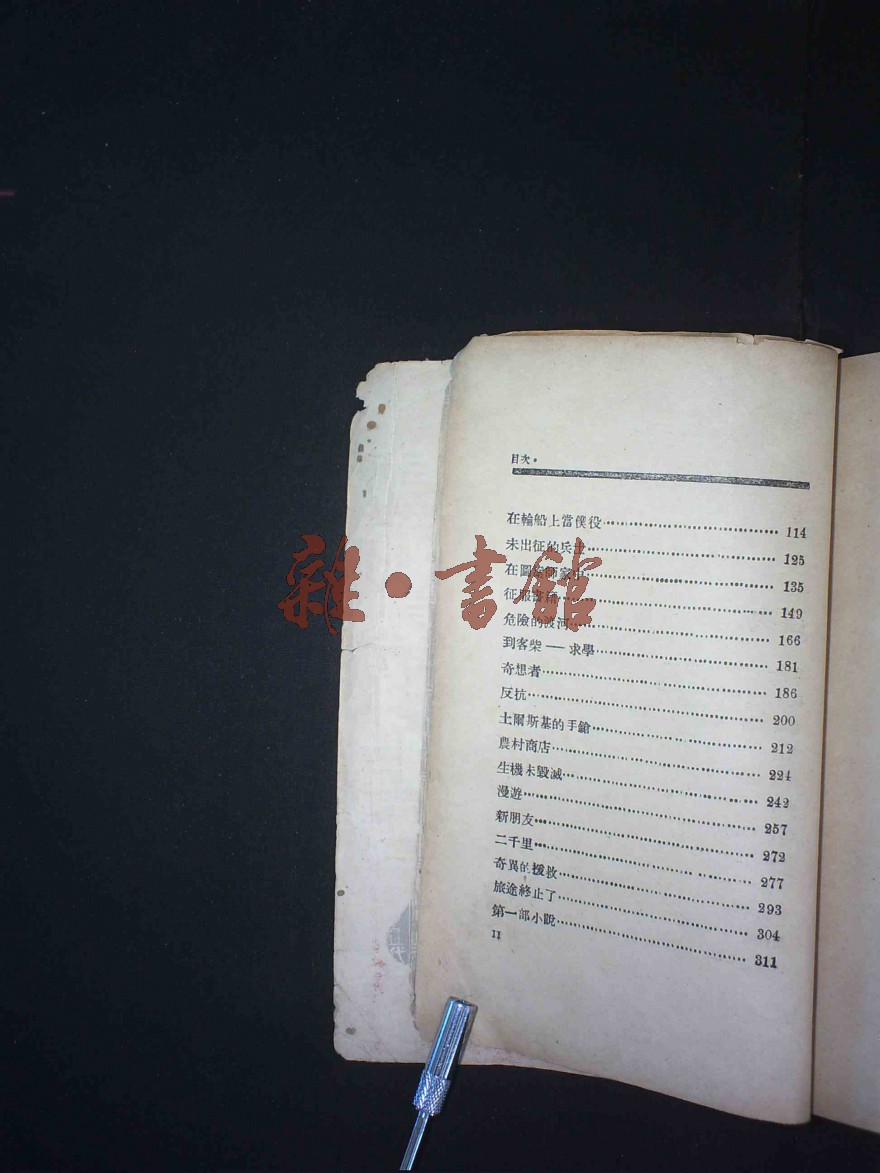 目次·
在輪船上當僕役 114
未出征的兵士 125
在圖案師家中 135
征服書籍 149
危險的渡河 166
到客柴 — 求學 181
奇想者 186
反抗 200
土爾斯基的手鎗 212
農村商店 224
生機未毀滅 242
漫遊 257
新朋友 272
二千里 277
奇異的援救 293
旅途終止了 304
第一部小說 311
II
雜·書館